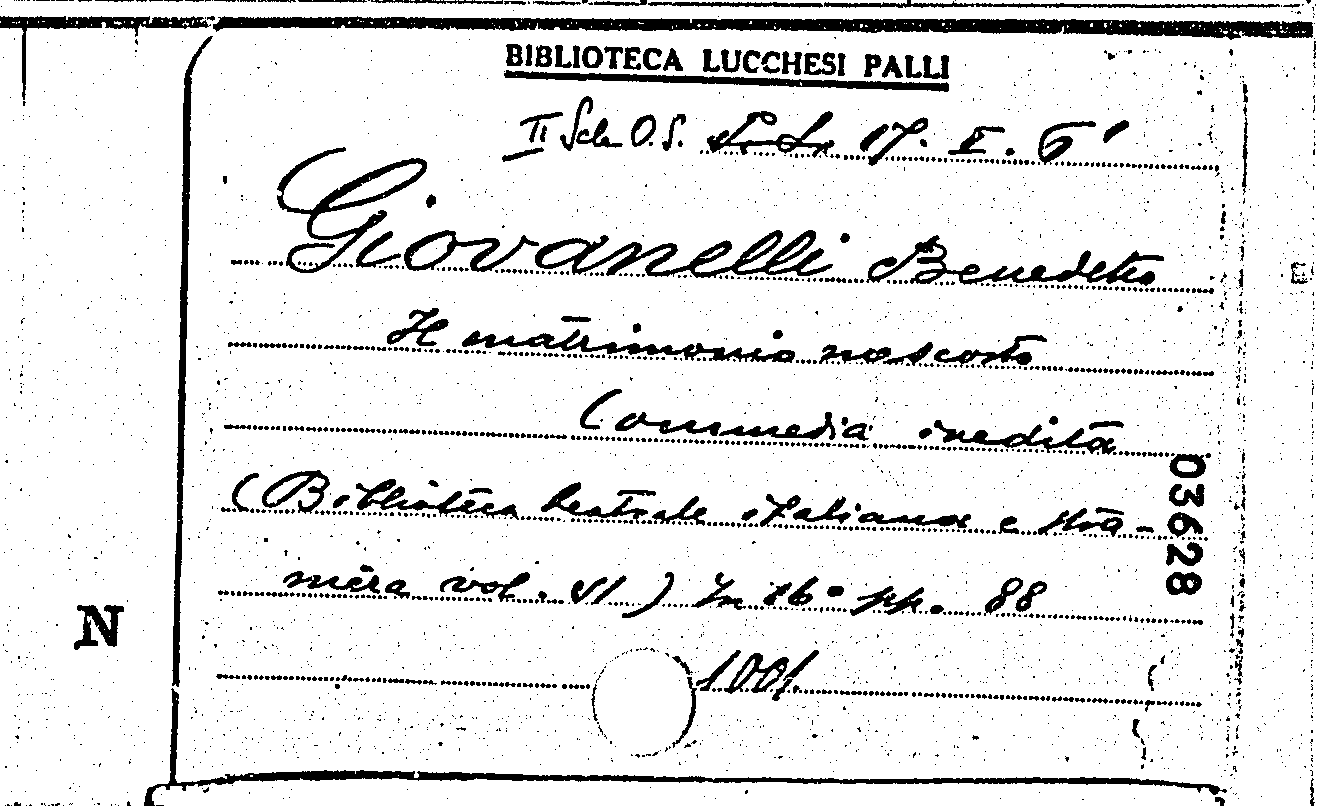 BIBLIOTECA LUCCHESI PALLI
II Scb. O. S. 17. I. 6¹
Giovanelli Benedetto
Il matrimonio nascosto
Commedia inedita
(Biblioteca teatrale italiana e stra-
niera vol. 51) In 16° pp. 88
1001
03628
N